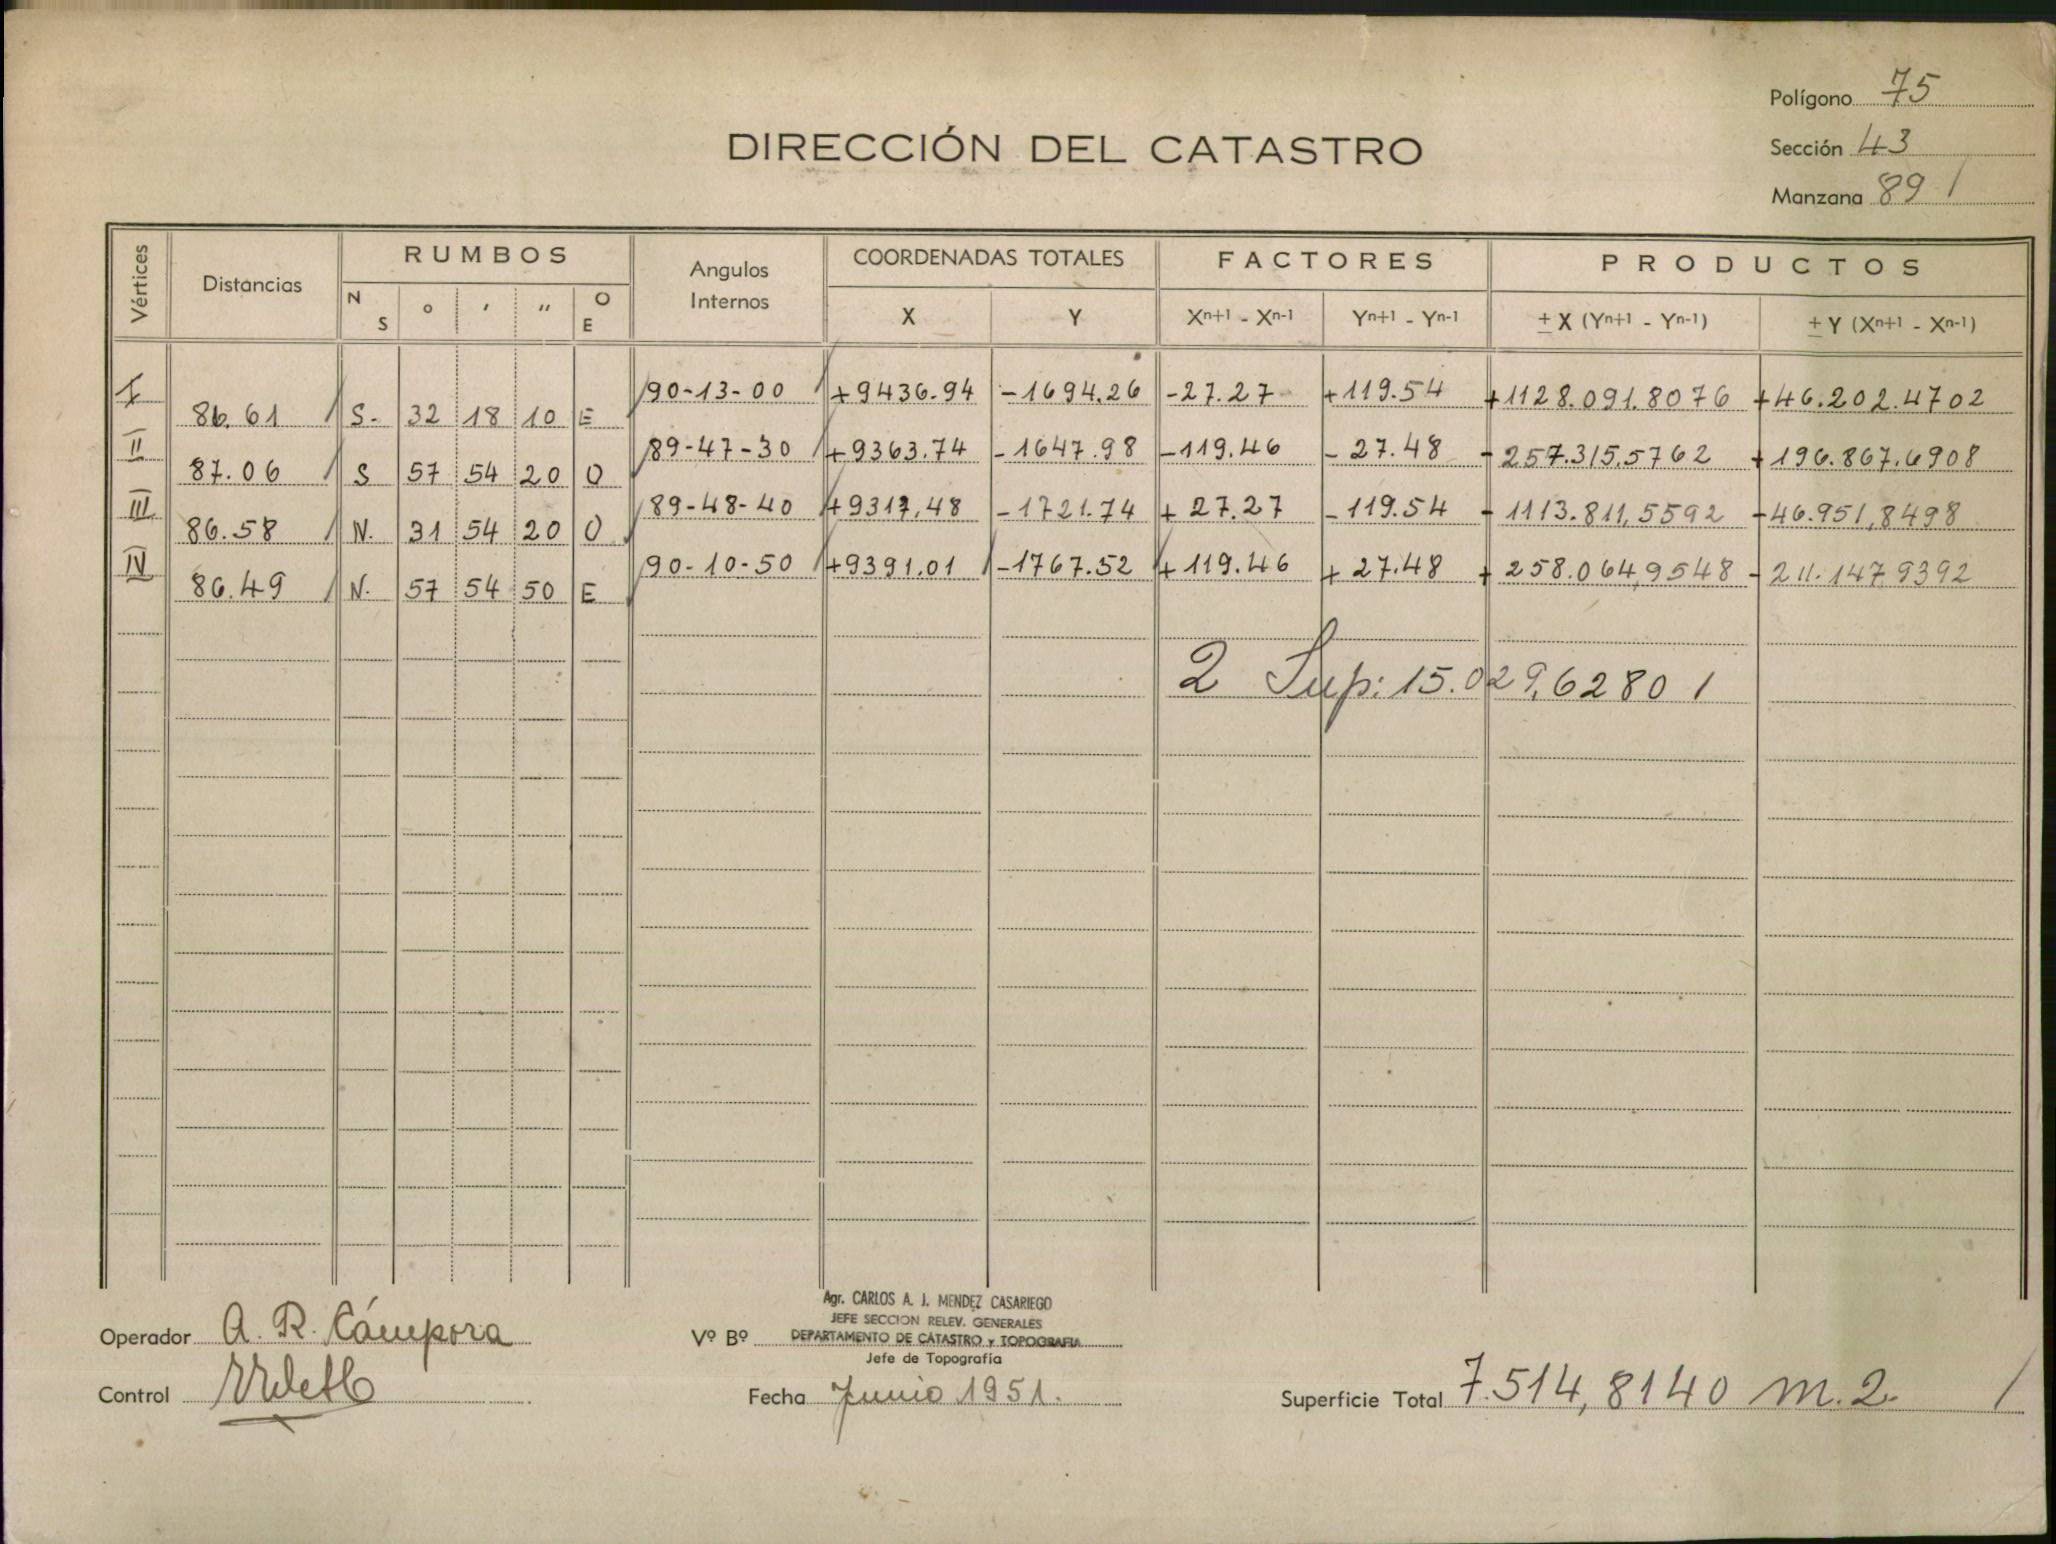 Polígono 75
DIRECCIÓN DEL CATASTRO
Sección 43
Manzana 89 /
Vértices Distancias RUMBOS Angulos Internos COORDENADAS TOTALES FACTORES PRODUCTOS
N S ° ' " O E X Y Xn+1 - Xn-1 Yn+1 - Yn-1 ± X (Yn+1 - Yn-1) ± Y (Xn+1 - Xn-1)
I 90-13-00 +9436.94 -1694.26 -27.27 +119.54 +1128.091.8076 +46.202.4702
86.61 S- 32 18 10 E
II 89-47-30 +9363.74 -1647.98 -119.46 -27.48 -257.315,5762 +196.867.6908
87.06 S 57 54 20 O
III 89-48-40 +9317,48 -1721.74 +27.27 -119.54 -1113.811,5592 -46.951,8498
86.58 N. 31 54 20 O
IV 90-10-50 +9391.01 -1767.52 +119.46 +27.48 +258.064,9548 -211.147.9392
86.49 N. 57 54 50 E
2 Sup: 15.029,6280 /
Agr. CARLOS A. J. MENDEZ CASARIEGO
JEFE SECCION RELEV. GENERALES
Operador A. R. Cámpora Vº Bº DEPARTAMENTO DE CATASTRO y TOPOGRAFIA
Jefe de Topografía
Control
Fecha Junio 1951.
Superficie Total 7.514,8140 m.2. /